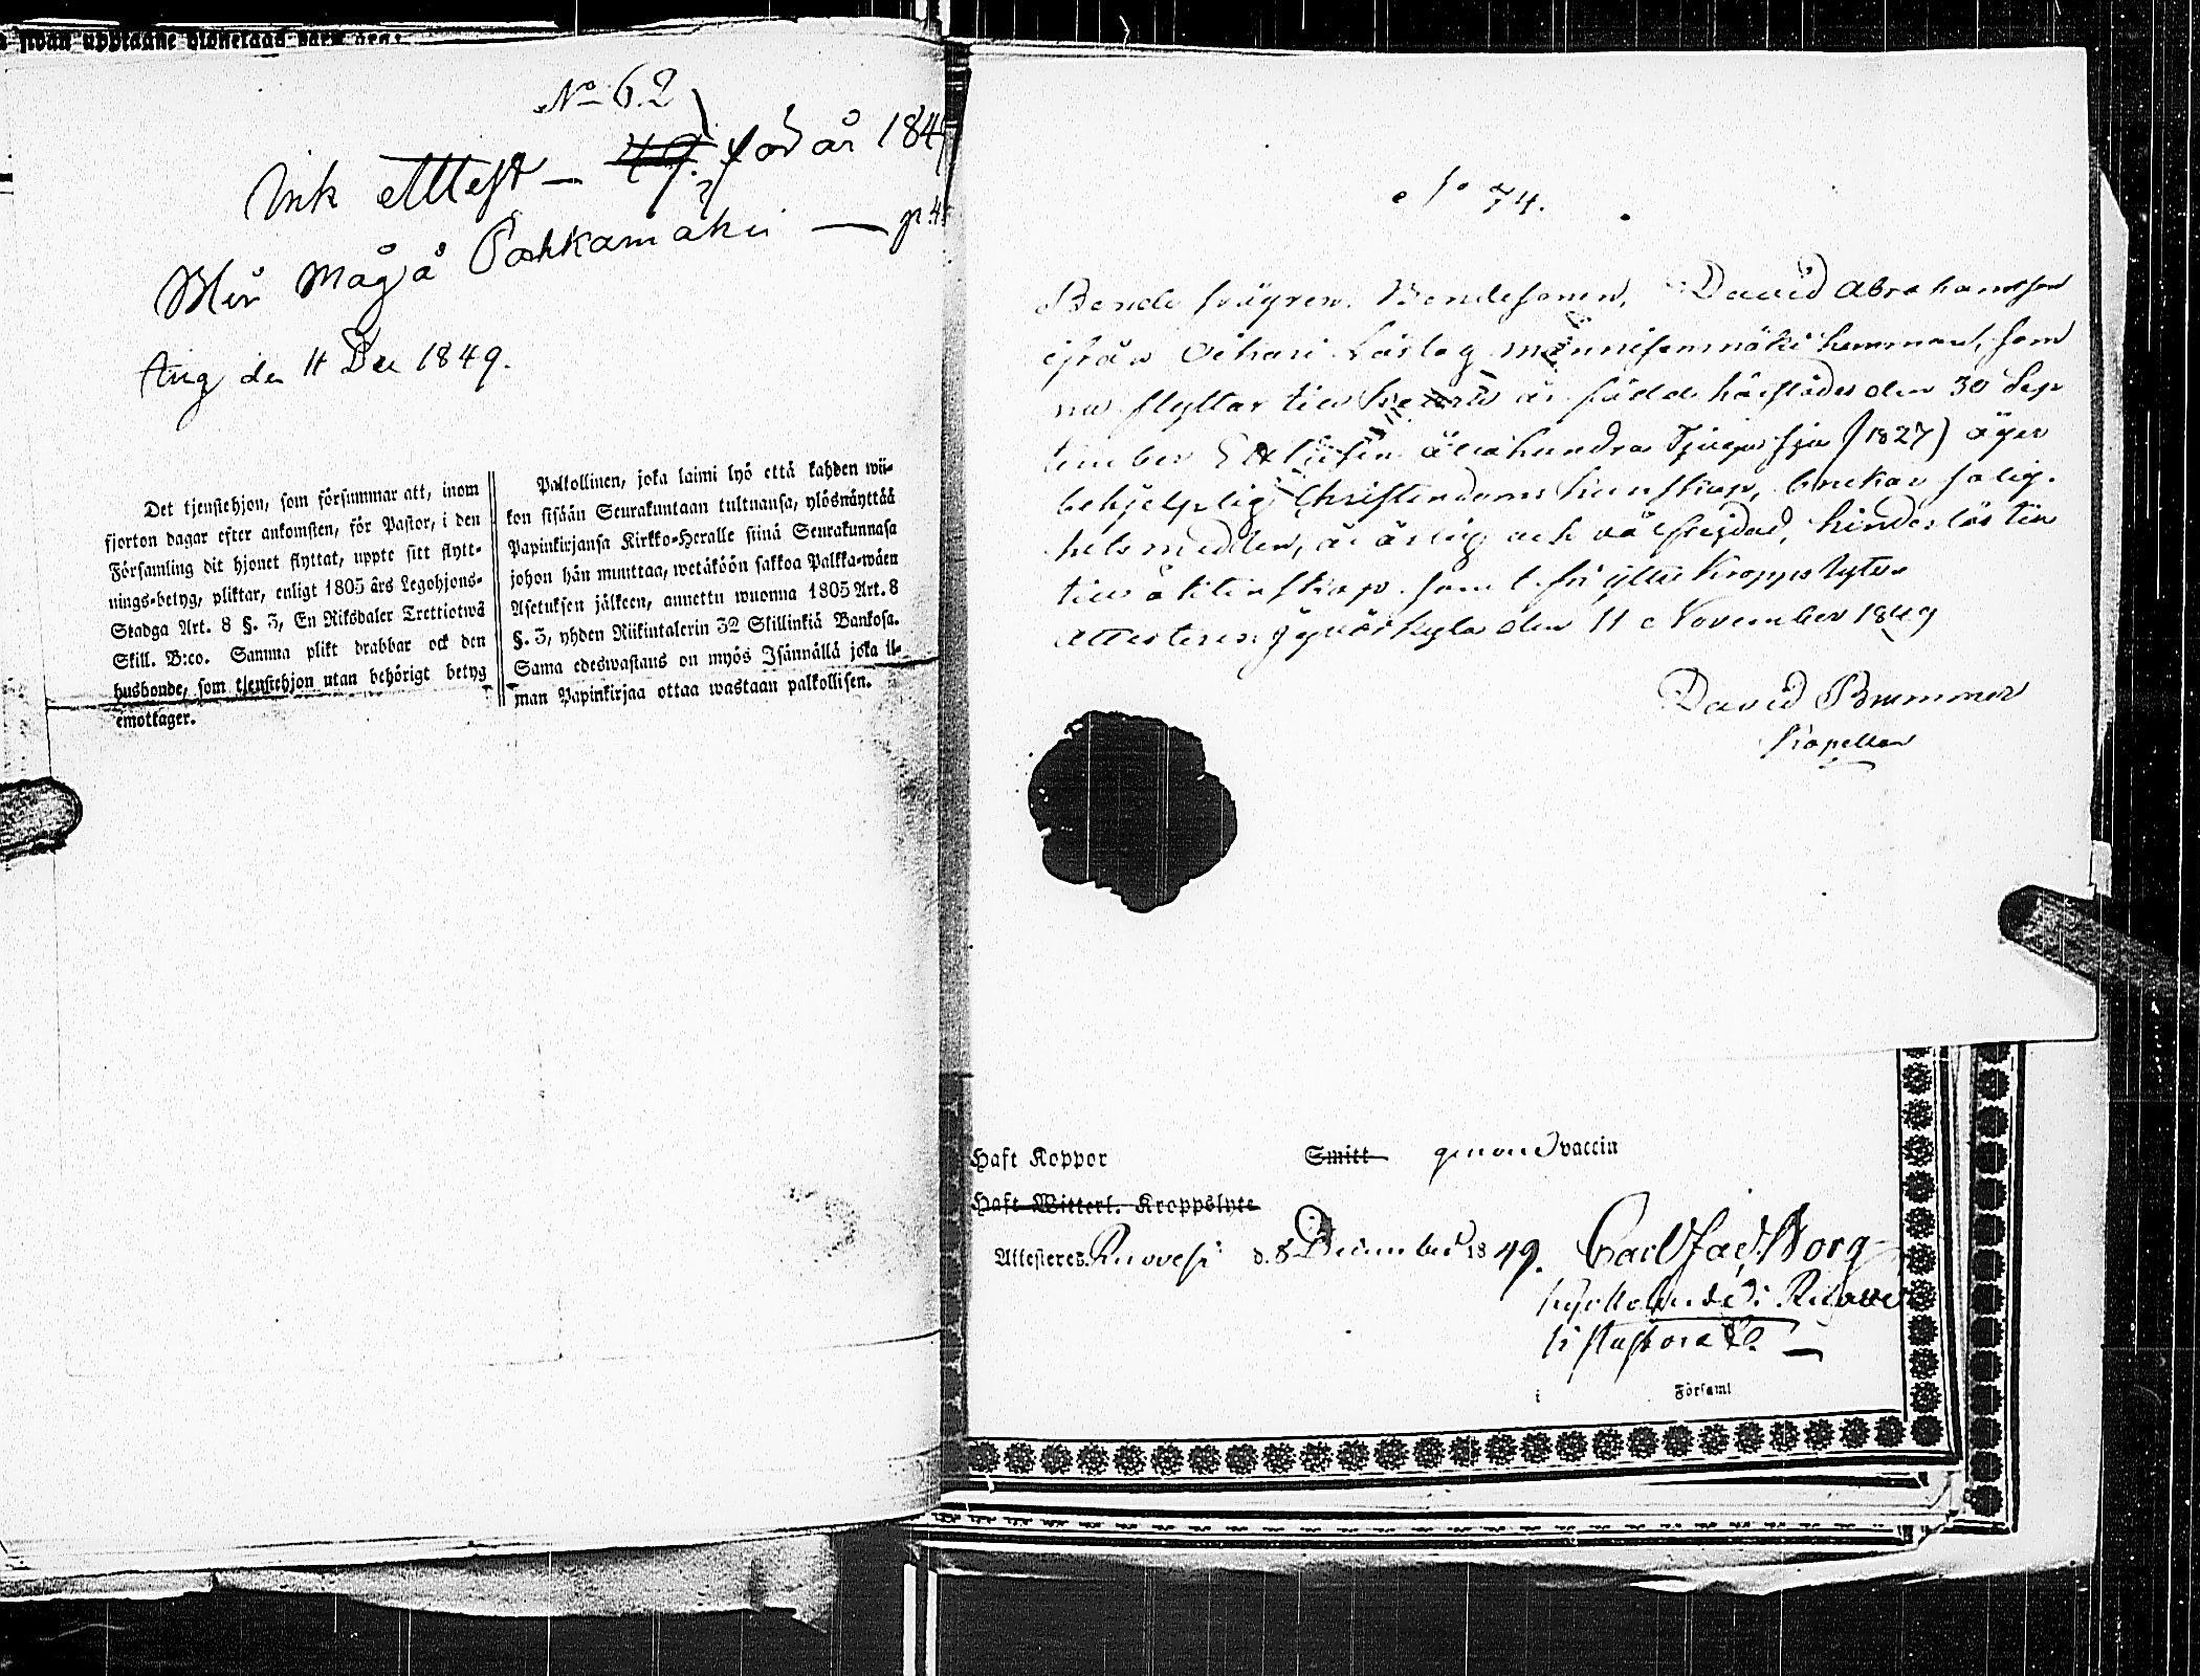 N:o 62
Ink Attest — 49. för år 1849
Blir måg å Pohkamäki — p 4
Aug den 11 Dec 1849.
Det tjenstehjon, som försummar att, inom
fjorton dagar efter ankomsten, för Pastor, i den
Församling dit hjonet flyttat, uppte sitt flytt-
nings-betyg, pliktar, enligt 1805 års Legohjons-
Stadga Art. 8 §. 3, En Riksdaler Trettiotwå
Skill. B:co. Samma plikt drabbar ock den
husbonde, som tjenstehjon utan behörigt betyg
emottager.
Palkollinen, joka laimi lyö että kahden wii-
kon sisään Seurakuntaan tultuansa, ylösnäyttää
Papinkirjansa Kirkko-Heralle siinä Seurakunnasa
johon hän muuttaa, wetäköön sakkoa Palkka-wäen
Asetuksen jälkeen, annettu wuonna 1805 Art. 8
§. 3, yhden Riikintalerin 32 Skillinkiä Bankosa.
Sama edeswastaus on myös Isännällä joka il-
man Papinkirjaa ottaa wastaan palkollisen.
N:o 74.
Bonde Bondesonen, David Abrahamsson
ifrån Oihari Lästag Männisenmäki hemman, som
nu flyttar till är född härstädes den 30 Sep-
tember adertonhundra Tjugusju (1827) äger
behjelplig Christendoms kunskap, brukar salig-
hets medlen, är ärlig och välfrejdad, hinderlös till
till äktenskap samt fri ifrån kroppslyten
Attesteras Jyväskylä den 11 November 1849
David Brummer
Kapellan
Haft Koppor Smitt genom vaccin
Haft Witterl. Kroppslyte
Attesteres Ruovesi d. 8 December 1849. Carl Jac. Borg
i Ruovesi
Pastorat.
i Församl